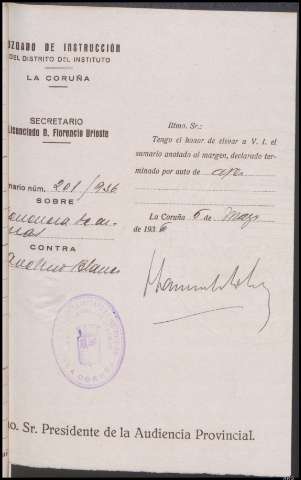 UZGADO DE INSTRUCCIÓN
DEL DISTRITO DEL INSTITUTO
LA CORUÑA
SECRETARIO
Licenciado D. Florencio Brieste
nario núm. 201/936
SOBRE
CONTRA
Blanco
Iltmo. Sr.:
Tengo el honor de elevar a V. I. el
sumario anotado al margen, declarado ter-
minado por auto de
La Coruña 5 de Mayo
de 1936
no. Sr. Presidente de la Audiencia Provincial.